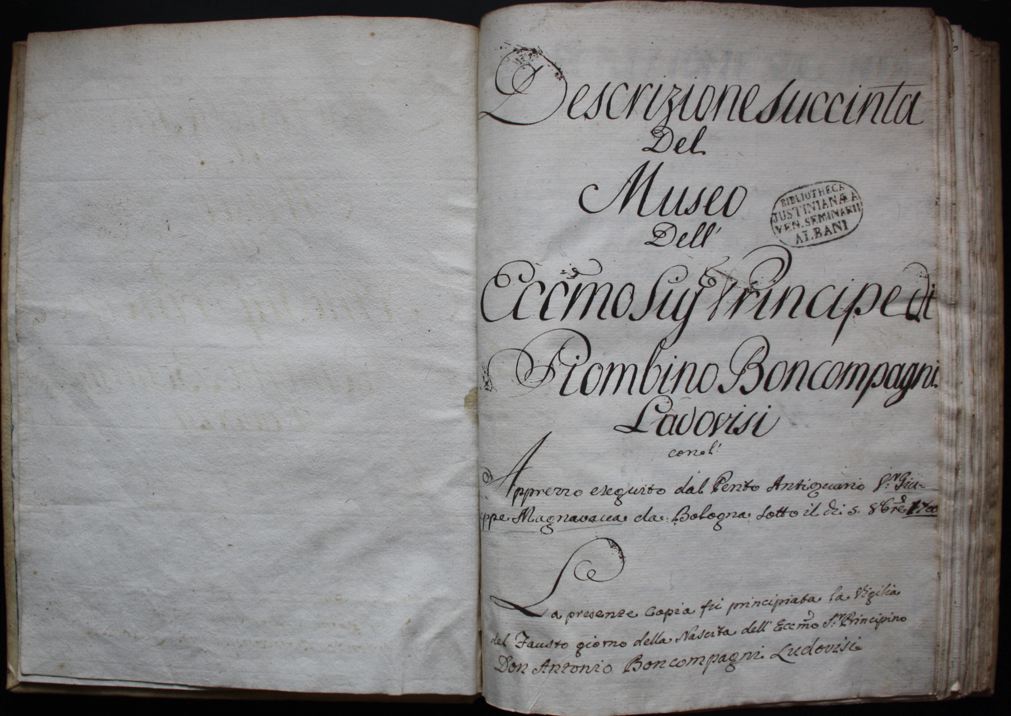 Descrizione Succinta
Del
Museo
BIBLIOTHECA
JUSTINIANÆA
VEN. SEMINARII
ALBANI
Dell'
Ecc̃mo Sig.r Principe di
Piombino Boncompagni
Ludovisi
con l'
Apprezzo eseguito dal Perito Antiquario S.r Giu-
ppe Magnavacca da Bologna sotto il dì 5. 8bre
La presente Copia fù principiata la Vigilia
del Fausto giorno della Nascita dell' Ecc̃mo S.r Principino
Don Antonio Boncompagni Ludovisi